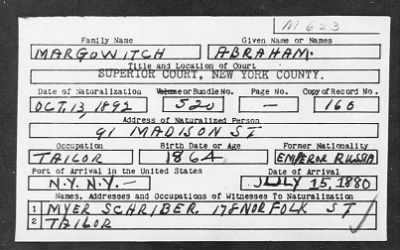 M 623
Family Name Given Name or Names
MARGOWITCH ABRAHAM.
Title and Location of Court
SUPERIOR COURT, NEW YORK COUNTY.
Date of Naturalization Volume or Bundle No. Page No. Copy of Record No.
OCT. 13, 1892 520 — 160
Address of Naturalized Person
91 MADISON ST
Occupation Birth Date or Age Former Nationality
TAILOR 1864 EMPEROR RUSSIA
Port of Arrival in the United States Date of Arrival
N.Y. N.Y. — JULY 15, 1880
Names, Addresses and Occupations of Witnesses To Naturalization
1 MYER SCHRIBER. 178 NORFOLK ST
2 TAILOR